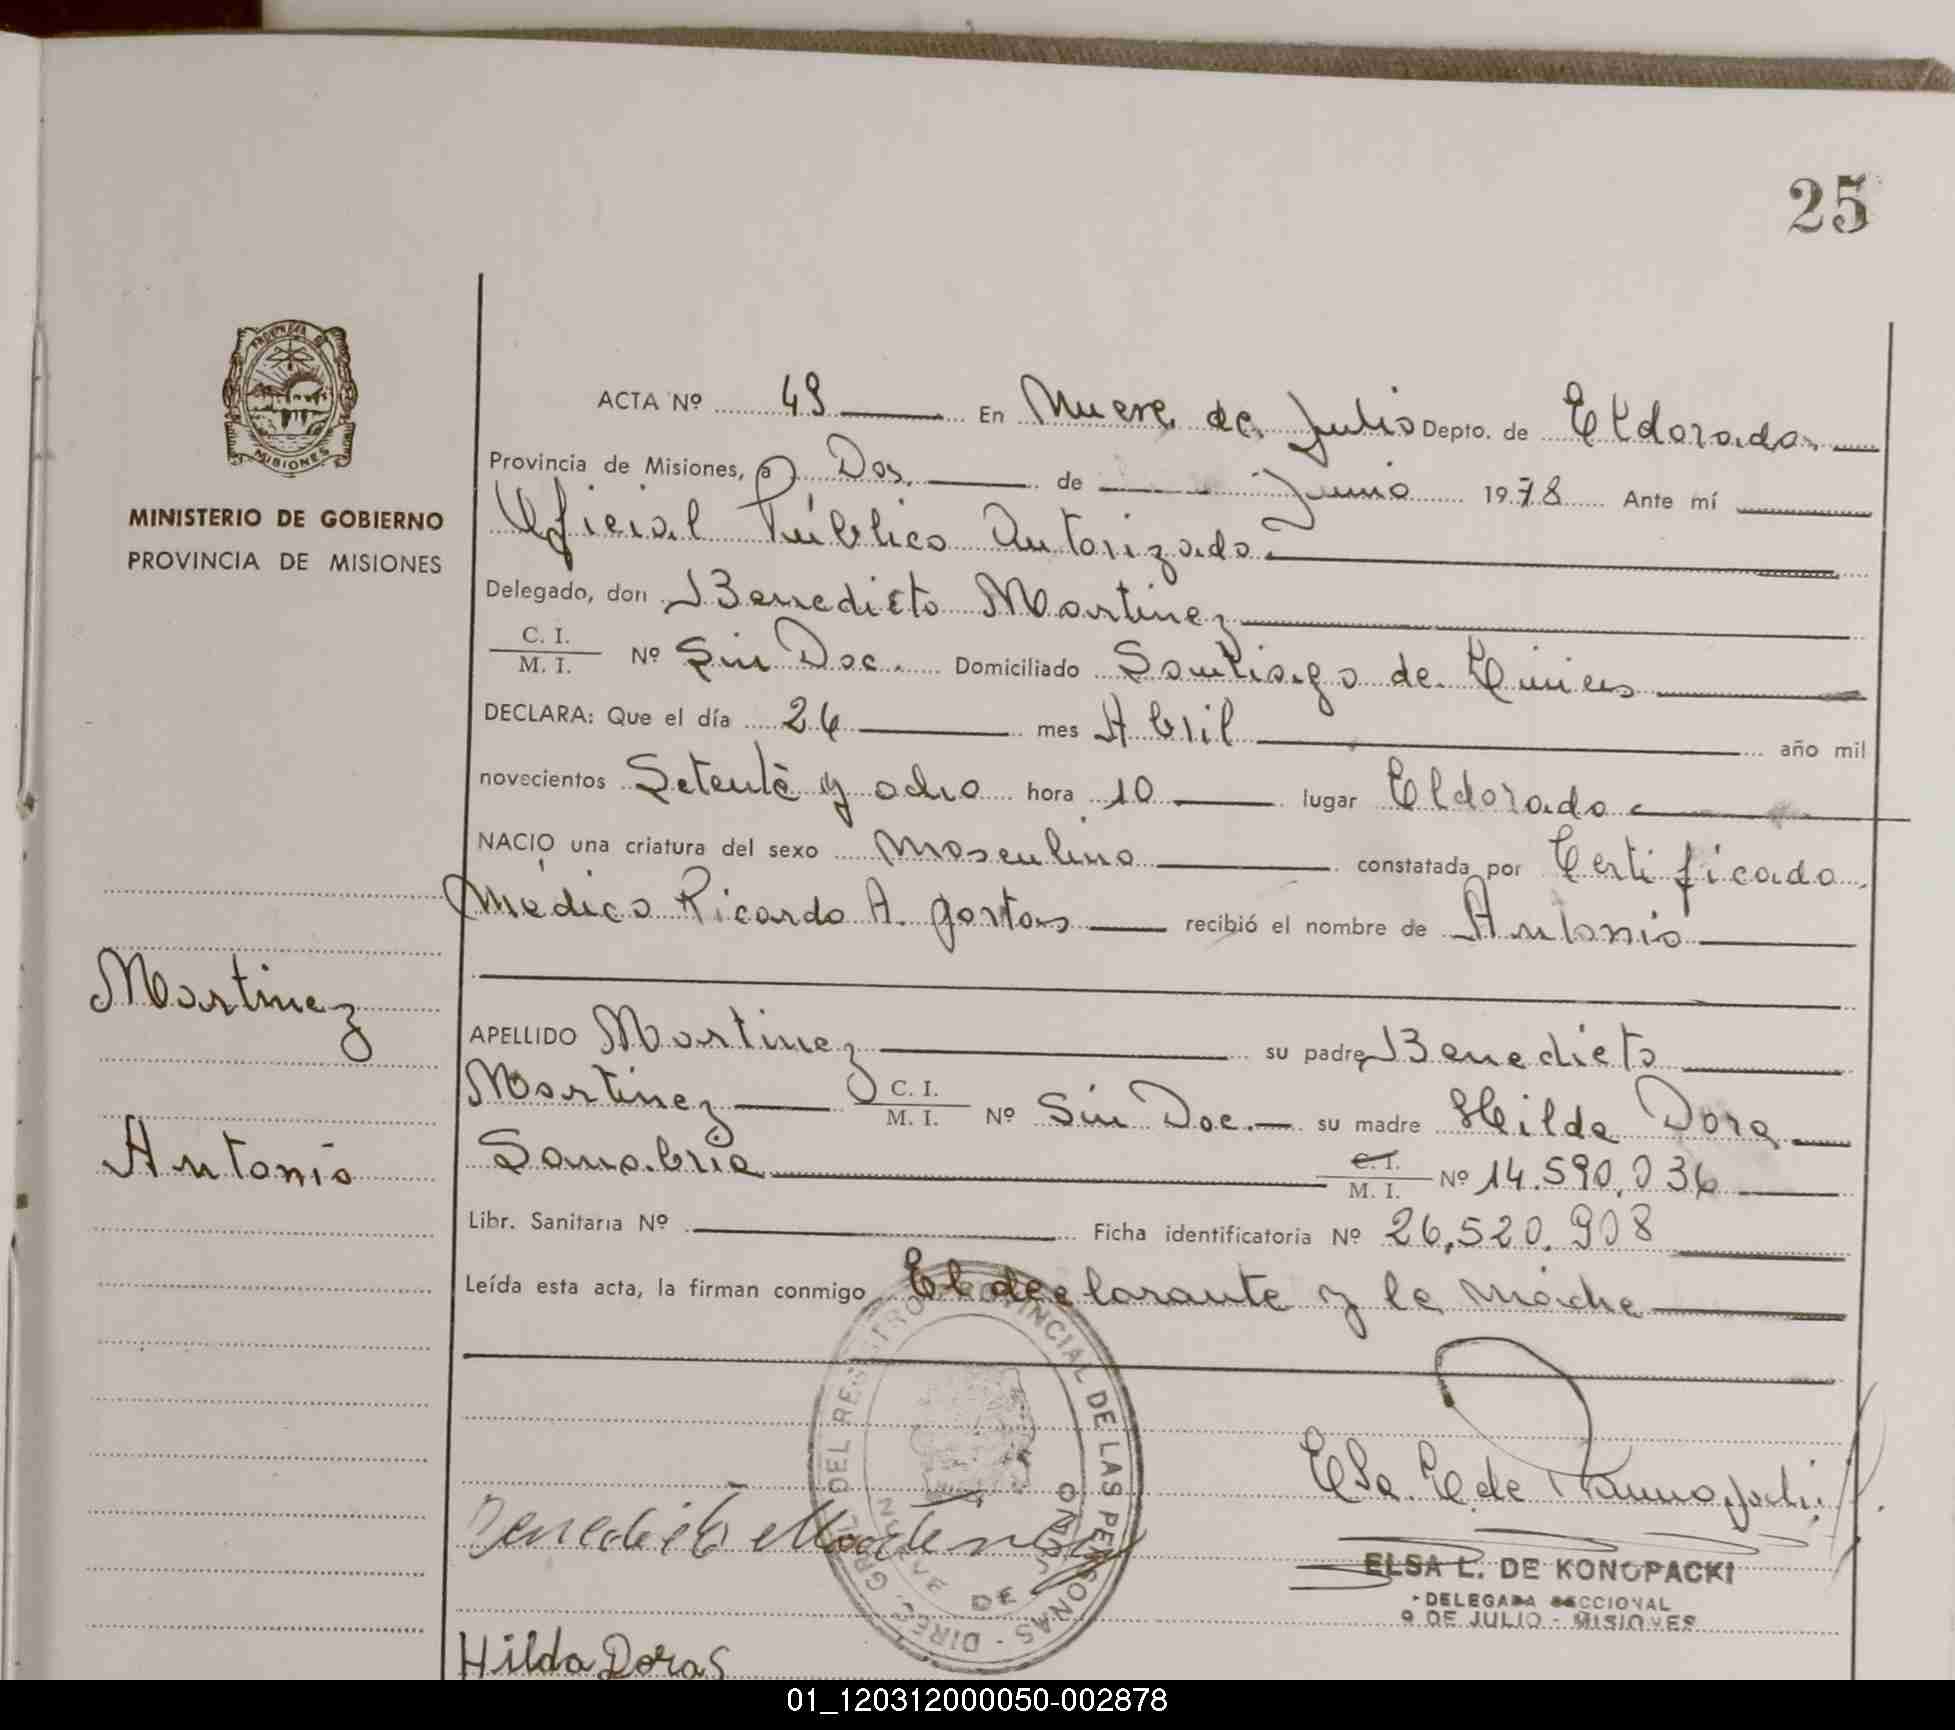 25
PROVINCIA DE
MISIONES
MINISTERIO DE GOBIERNO
PROVINCIA DE MISIONES
Martinez
Antonio
ACTA Nº 49 En Nueve de Julio Depto. de Eldorado
Provincia de Misiones, a Dos de Junio 1978 Ante mí
Oficial Público Autorizado
Delegado, don Benedicto Martinez
C. I.
M. I. Nº Sin Doc. Domiciliado Santiago de Liniers
DECLARA: Que el día 26 mes Abril año mil
novecientos Setenta y ocho hora 10 lugar Eldorado
NACIO una criatura del sexo Masculino constatada por Certificado
Médico Ricardo A. recibió el nombre de Antonio
APELLIDO Martinez su padre Benedicto
Martinez C. I. M. I. Nº Sin Doc. su madre Hilda Dora
Sanabria C. I. M. I. Nº 14.590.036
Libr. Sanitaria Nº Ficha identificatoria Nº 26.520.908
Leída esta acta, la firman conmigo El declarante y la madre
DIREC. GRAL. DEL REGISTRO PROVINCIAL DE LAS PERSONAS
NUEVE DE JULIO
Benedicto Martinez
ELSA L. DE KONOPACKI
DELEGADA SECCIONAL
9 DE JULIO - MISIONES
Hilda Dora S
01_120312000050-002878